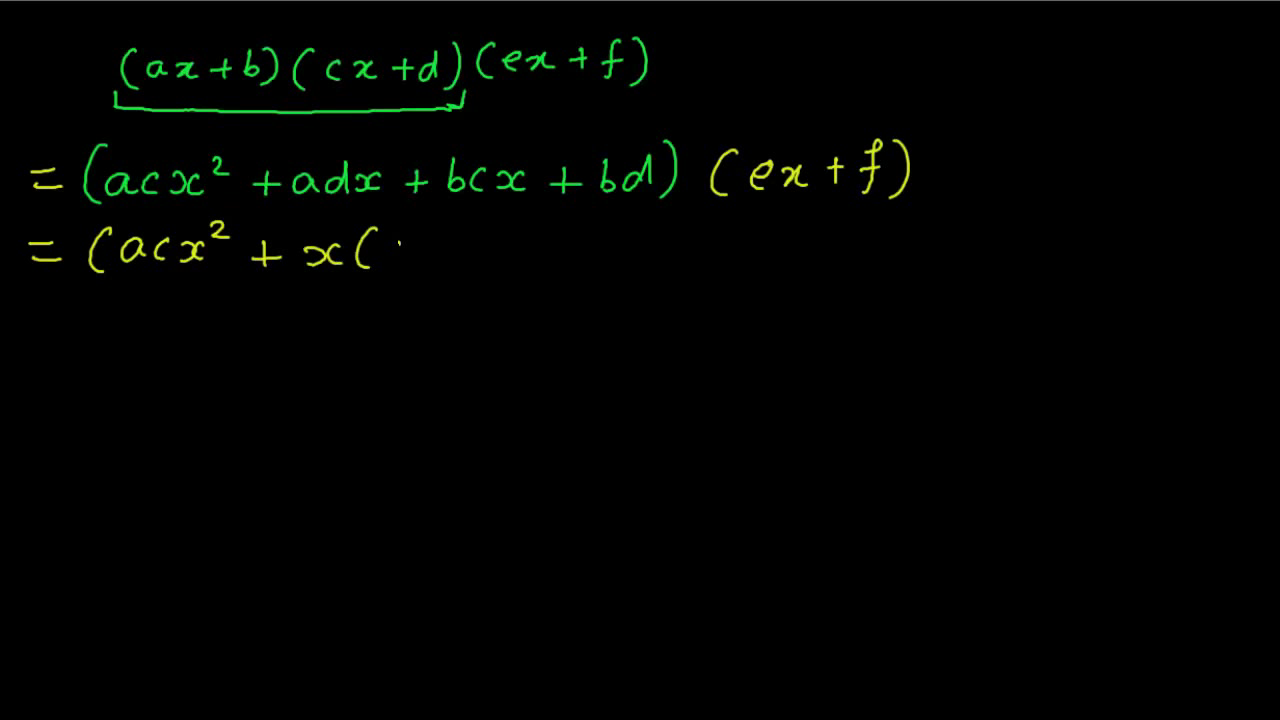 (ax+b)(cx+d)(ex+f)
= (acx² + adx + bcx + bd) (ex+f)
= (acx² + x(